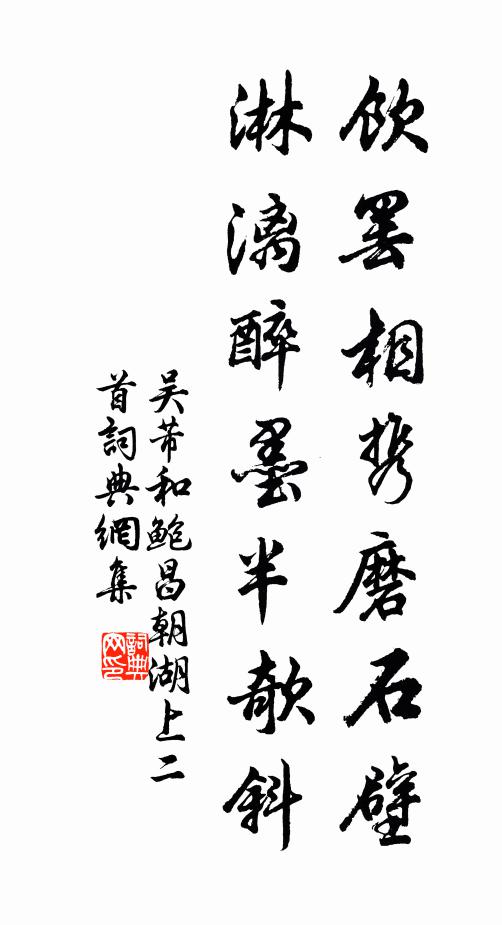 飲罷相携磨石壁
淋漓醉墨半欹斜
吴芾和鮑昌朝湖上二
首詞典網集
詞典
网印